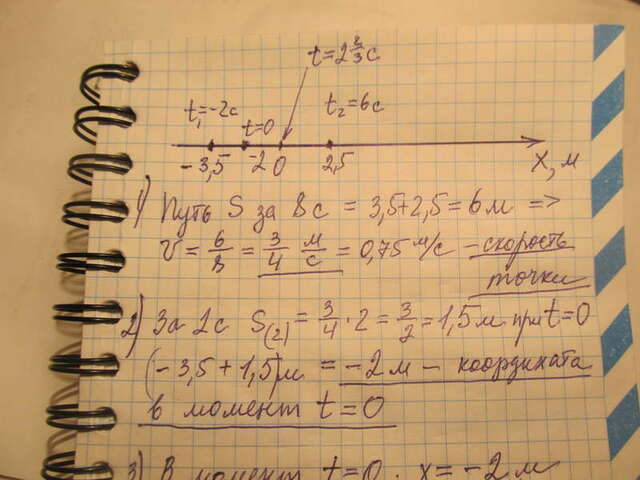 t=2 2/3 c
t₁=-2c t=0 t₂=6c
-3,5 -2 0 2,5 X, м
1) Путь S за 8 с = 3,5+2,5=6м =>
V = 6/8 = 3/4 м/с = 0,75 м/с - скорость
точки
2) За 2с S(2) = 3/4 · 2 = 3/2 = 1,5м при t=0
(-3,5+1,5)м = -2м - координата
в момент t=0
3) В момент t=0. x=-2м